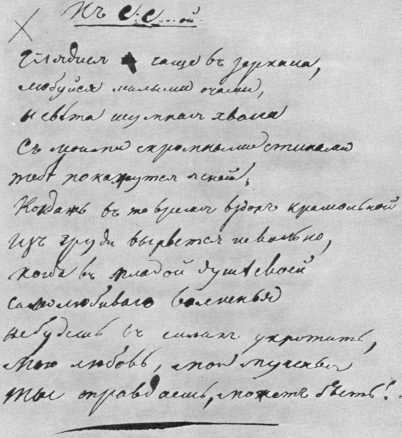 Къ С. С....ой.
Глядися чаще въ зеркала,
любуйся милыми очами,
и свѣта шумная хвала
съ моими скромными стихами
тебѣ покажутся яснѣй;
Когдажъ въ то время вздохъ крамольной
Изъ груди вырвется невольно,
когда въ младой душѣ своей
самолюбиваго волненья
не будешь въ силахъ укротить,
Мою любовь, мои мученья
Ты оправдаешь, можетъ быть!